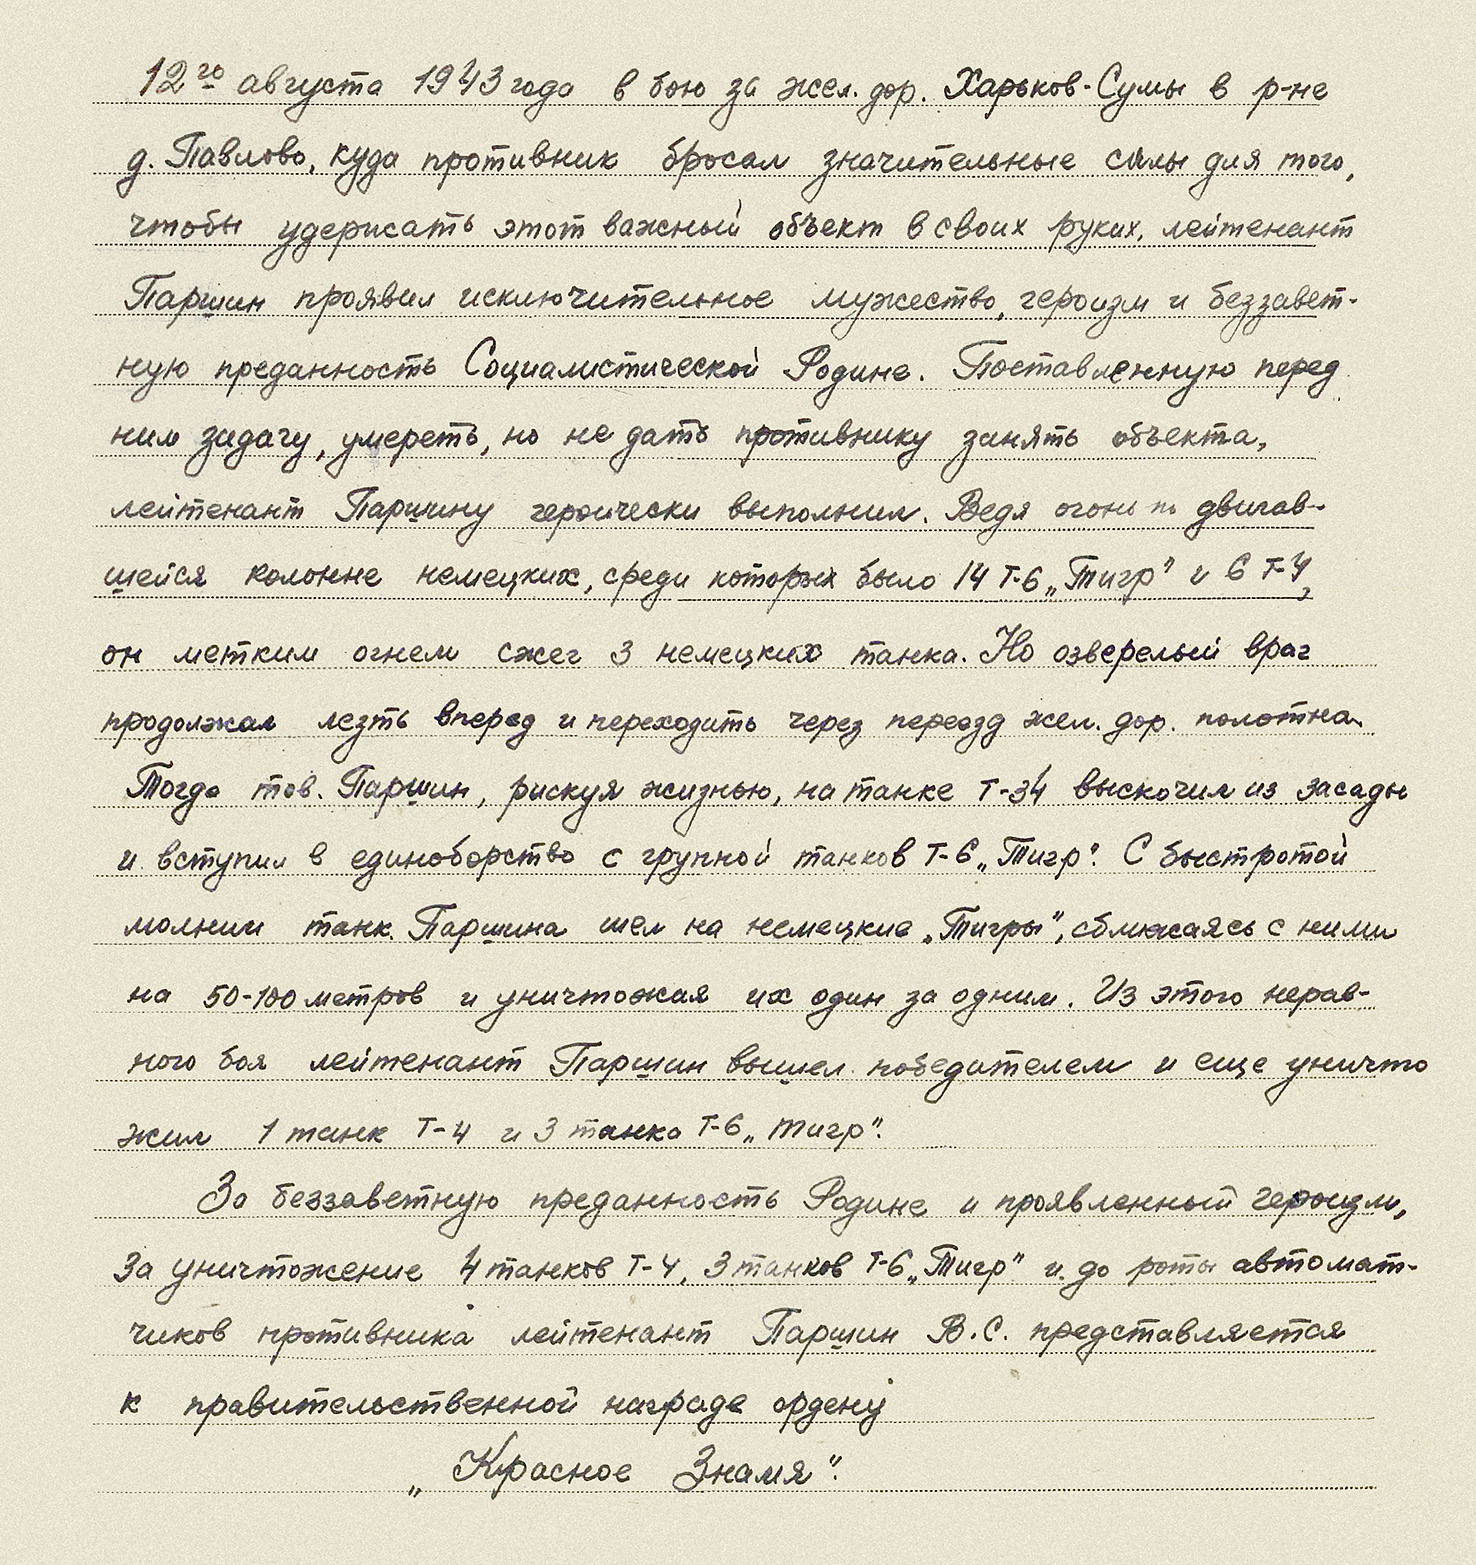 12го августа 1943 года в бою за жел. дор. Харьков-Сумы в р-не
д. Павлово, куда противник бросал значительные силы для того,
чтобы удержать этот важный объект в своих руках, лейтенант
Паршин проявил исключительное мужество, героизм и беззавет-
ную преданность Социалистической Родине. Поставленную перед
ним задачу, умереть, но не дать противнику занять объекта,
лейтенант Паршину героически выполнил. Ведя огонь по двигав-
шейся колонне немецких, среди которых было 14 Т-6 „Тигр" и 6 Т-4,
он метким огнем сжег 3 немецких танка. Но озверелый враг
продолжал лезть вперед и переходить через переезд жел. дор. полотна.
Тогда тов. Паршин, рискуя жизнью, на танке Т-34 выскочил из засады
и вступил в единоборство с группой танков Т-6 „Тигр". С быстротой
молнии танк Паршина шел на немецкие „Тигры", сближаясь с ними
на 50-100 метров и уничтожая их один за одним. Из этого нерав-
ного боя лейтенант Паршин вышел победителем и еще уничто
жил 1 танк Т-4 и 3 танка Т-6 „Тигр".
За беззаветную преданность Родине и проявленный героизм,
за уничтожение 4 танков Т-4, 3 танков Т-6 „Тигр" и до роты автомат-
чиков противника лейтенант Паршин В.С. представляется
к правительственной награде ордену
„Красное Знамя".